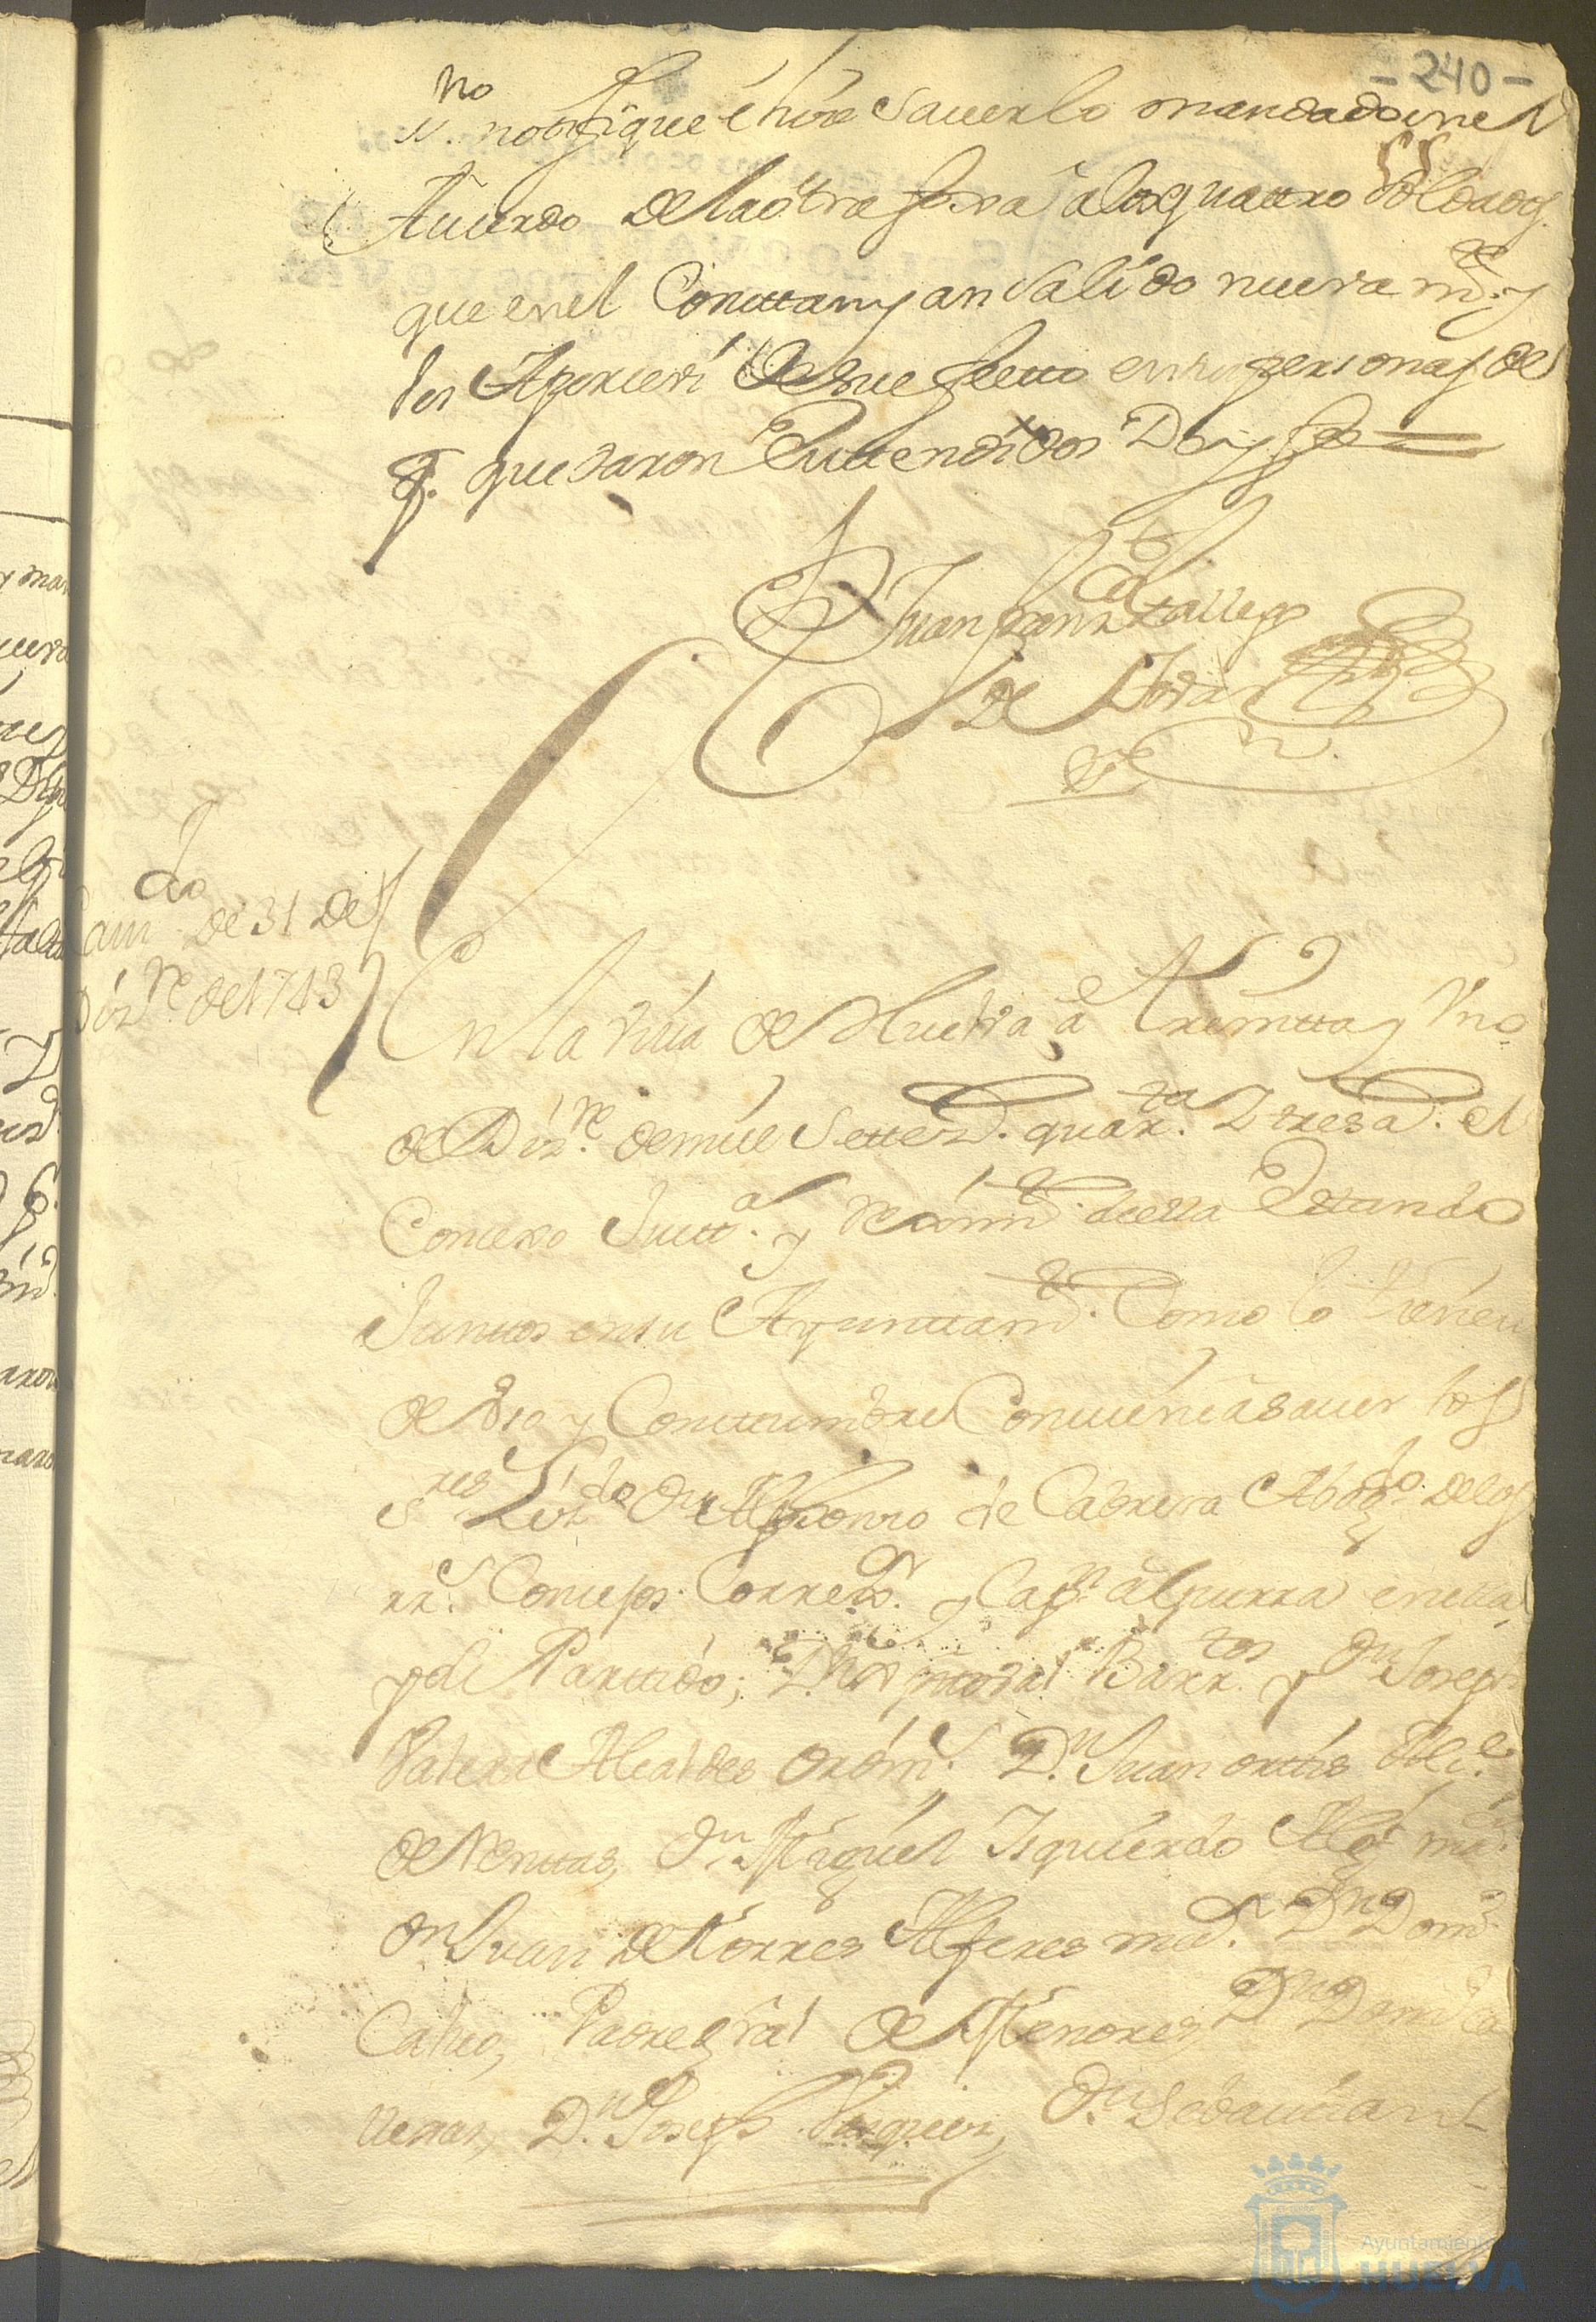 - 240 -
no
N. notifique e hize saver lo mandado en el
Acuerdo de la otra foxa a los quatro Soldados
que en el Consttan y an Salido nueva mte. y
les Aperceví de sue en sus personas de
q. quedaron Enttendidos Doy fe
Juan Gallego
de
Cavdo. de 31 de
Dizre. de 1743
En la Villa de Huelva a Treintta y Uno
de Dizre. de mill Settezs. quarta. y tres a. el
Concexo Justta. y Reximto. de ella Esttando
Junttos en su Ayunttamto. Como lo tienen
de Uso y Costtumbre Conviene a saver los
Sres Lizdo. Dn Alphonso de Cabrera Abogdo. de los
RRs. Consejos. Correxor. y Capn. a Guerra en ella
y su Parttido; Barrtos y Dn Joseph
Alcaldes Ordins. Dn. Juan orttis
de Renttas, Dn. Miguel Isquierdo Algl. mor.
Dn Juan de Torres Alferes mor. Dn Domo.
Calvo, Padre gral de Menores, Dn Domo.
Dn. Joseph Dn. Sebasttian
Ayuntamiento de
HUELVA